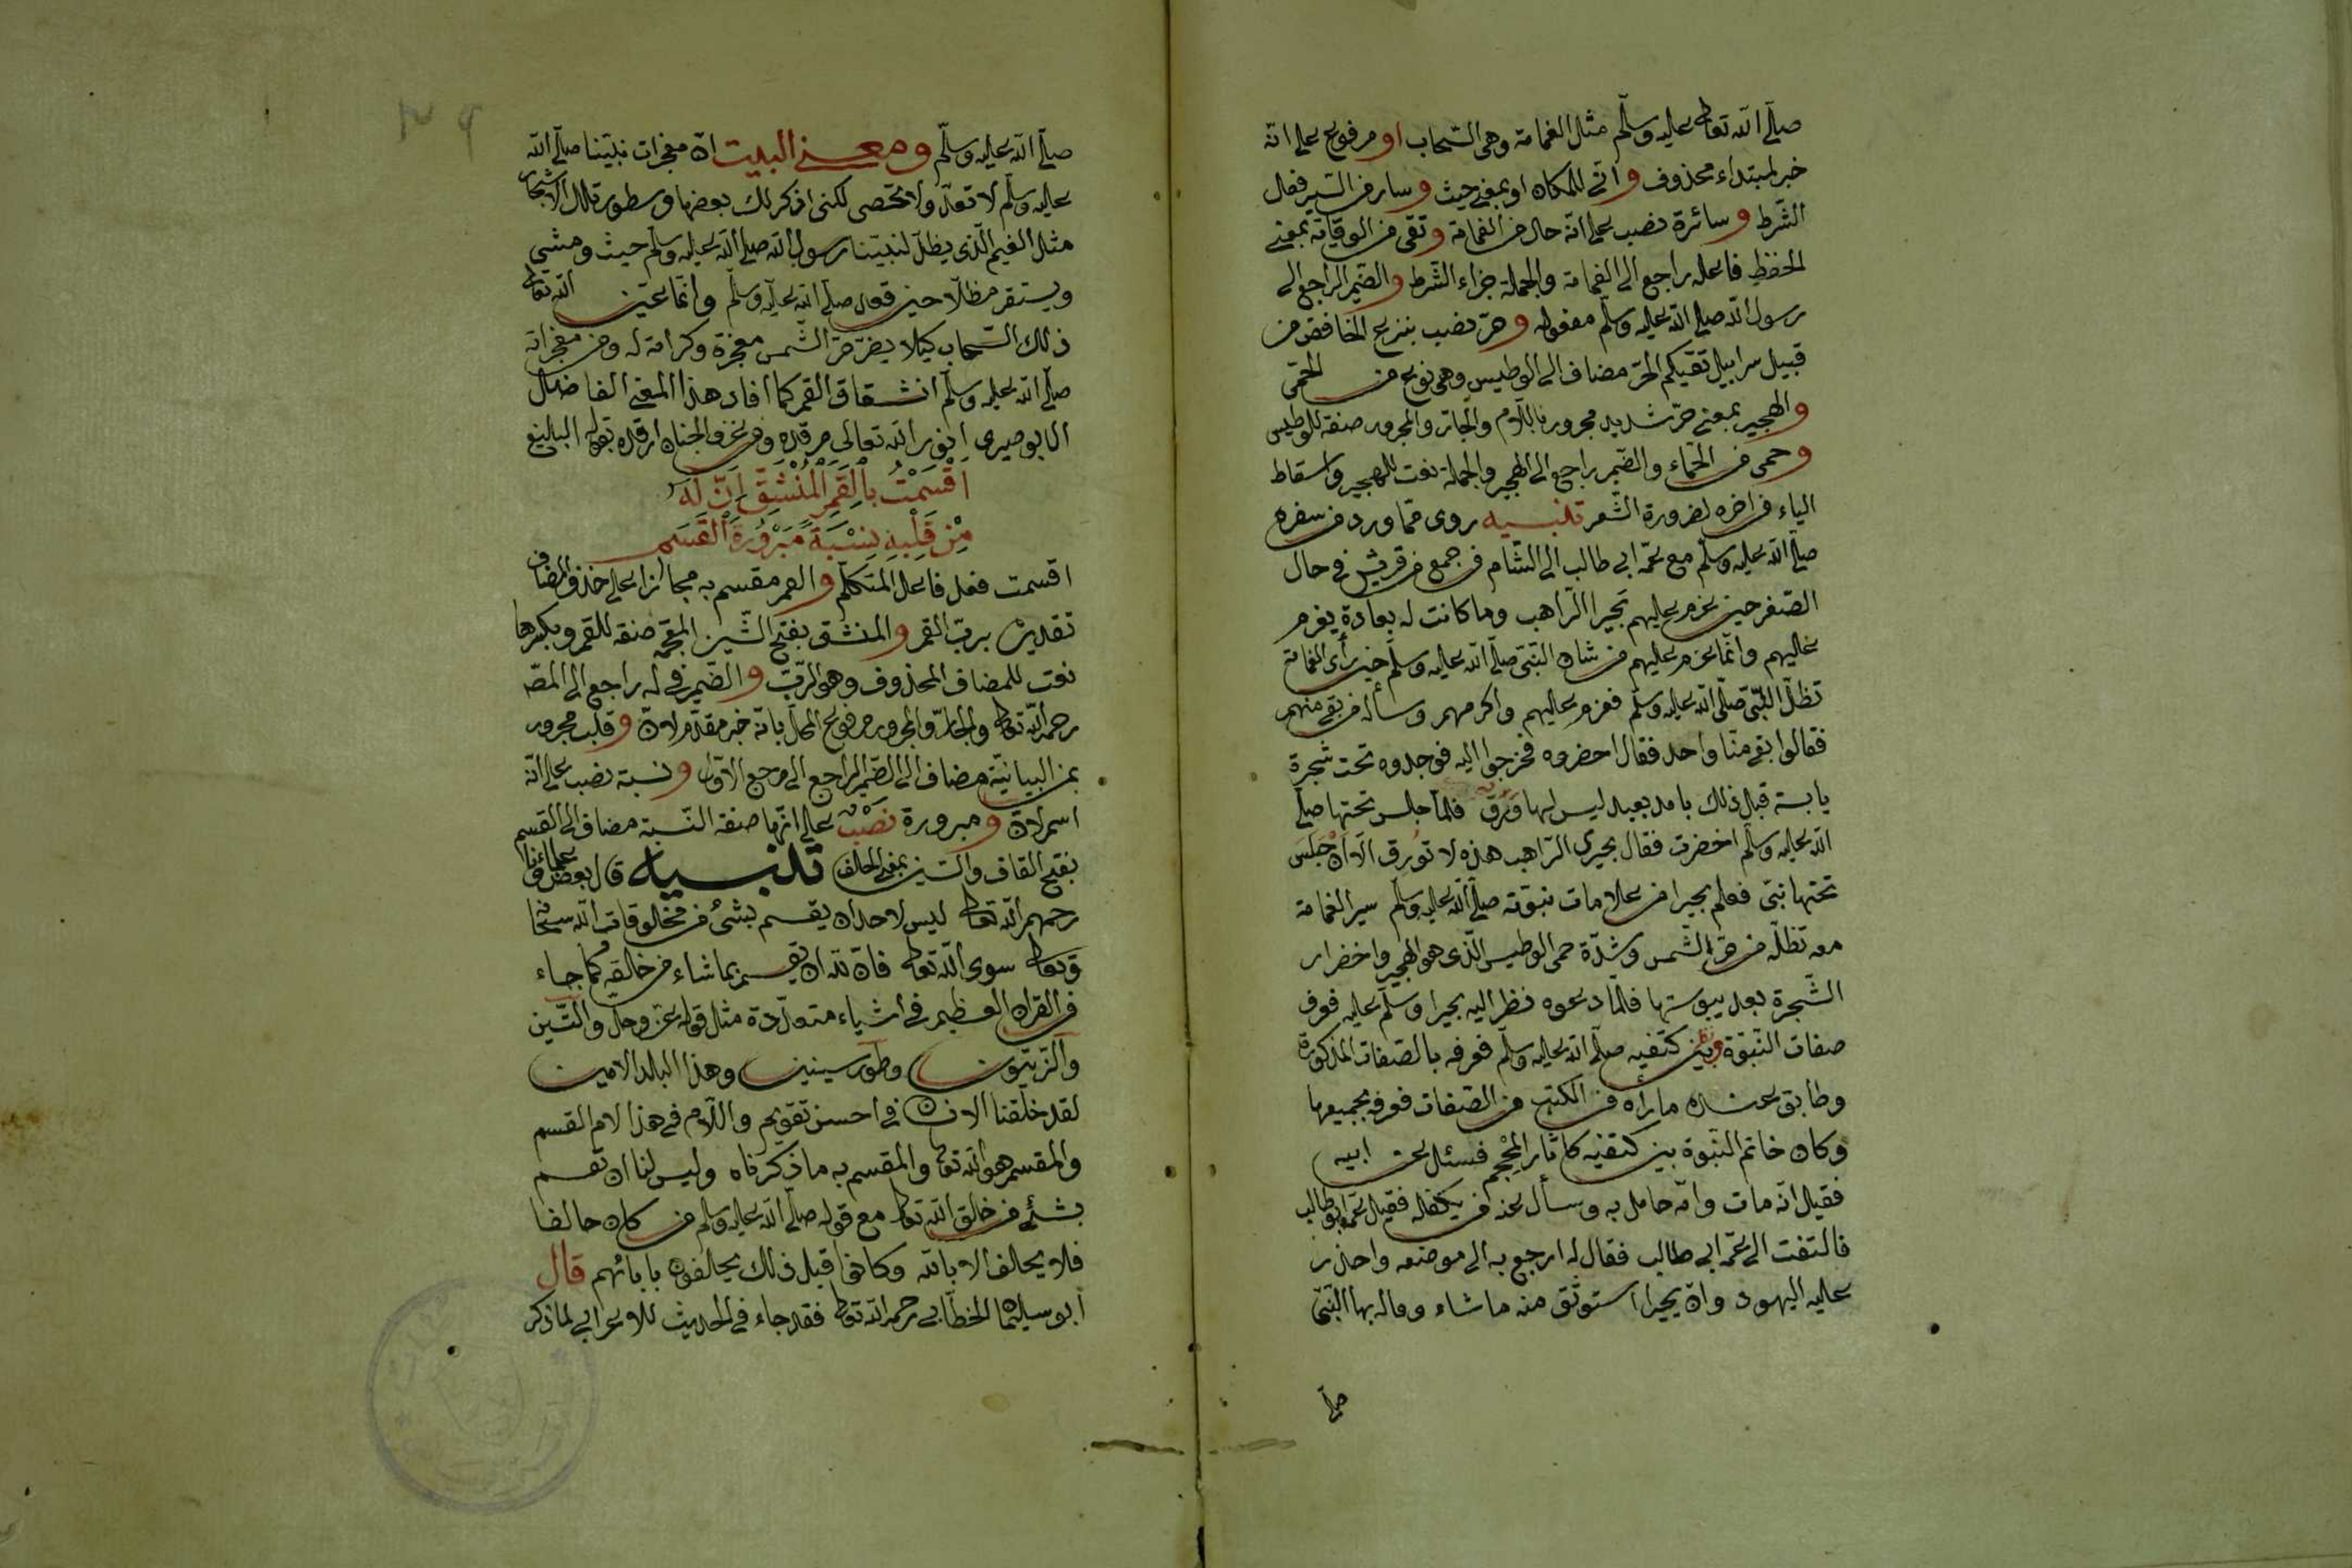 صلّى الله تعالى عليه وسلّم مثل الغمامة وهى السّحاب او مرفوع على انّه
خبر لمبتداء محذوف و انّى للمكان او بمعنى حيث و سار من السّير فعل
الشّرط و سائرة نصب على انّه حال من الغمامة و تقى من الوقاية بمعنى
الحفظ فاعله راجع الى الغمامة والجملة جزاء الشّرط و الضّمير الراجع الى
رسول الله صلى الله عليه وسلّم مفعوله و حرّ نصب بنزع الخافض من
قبيل سرابيل تقيكم الحرّ مضاف الى الوطيس وهى نوع من الحمّى
و الهجير بمعنى حرّ شديد مجرور باللّام والجارّ والمجرور صفة للوطيس
و حمى من الحمّاء والضّمير راجع الى الهجير والجملة نعت للهجير واسقاط
الياء فى اخره لضرورة الشّعر تنبيه روى ممّا ورد فى سفره
صلّى الله عليه وسلّم مع عمّه ابى طالب الى الشّام فى جمع من قريش فى حال
الصّغر حين عزم عليهم بحيرا الرّاهب وما كانت له بعادة يعزم
عليهم وانّما عزم عليهم من شان النّبىّ صلّى الله عليه وسلّم حين رأى الغمامة
تظلّ النّبىّ صلّى الله عليه وسلّم فعزم عليهم واكرمهم وسأله من بقى منهم
فقالوا بقى منّا واحد فقال احضروه فخرجوا اليه فوجدوه تحت شجرة
يابسة قبل ذلك بامد بعيد ليس لها وَرَقٌ فلمّا جلس تحتها صلّى
الله عليه وسلّم اخضرت فقال بحيرى الرّاهب هذه لا تُورق الّا ان جَلَسَ
تحتها نبىّ فعلم بحيرا من علامات نبوّته صلّى الله عليه وسلّم سير الغمامة
معه تظلّه من حرّ الشّمس وشدّة حمى الوطيس الّذى هو الهجير واخضرار
الشّجرة بعد يبوستها فلمّا دعوه نظر اليه بحيرا وسلّم عليه فعرف
صفات النّبوّة وبين كتفيه صلّى الله عليه وسلّم فعرفه بالصّفات المذكورة
وطابق عنده ما رأه فى الكتب من الصّفات فعرفه بجميعها
وكان خاتم النّبوة بين كتفيه كاثار المِحْجم فسئل عن ابيه
فقيل انّه مات وامّه حامل به وسأل عنه من يكفله فقيل عمّه ابو طالب
فالتفت الى عمّه ابى طالب فقال له ارجع به الى موضعه واحذر
عليه اليهود وانّ بحيرا استوثق منه ما شاء بها النّبىّ
صلّى
صلّى الله عليه وسلّم و معنى البيت انّ معجزات نبيّنا صلّى الله
عليه وسلّم لا تعدّ ولا تحصى لكنى اذكر لك بعضها وسطور تلك الاشجار
مثل الغيم الّذى يظلّ لنبيّنا رسول الله صلى الله عليه وسلّم حيث ومشى
ويستقر مظلّلا حين قعد صلّى الله عليه وسلّم وانّما عيّن الله تعالى
ذلك السّحاب كيلا يضرّ حرّ الشّمس معجزة وكرامة له ومن معجزاته
صلّى الله عليه وسلّم انشقاق القمر كما افاد هذا المعنى الفاضل
الابوصيرى نور الله تعالى مرقده وفى غرف الجنان ارقده بقوله البالغ
اَقْسَمْتُ بِالْقَمَرِ الْمُنْشَقِّ اِنَّ لَهُ
مِنْ قَلْبِهِ نِسْبَةً مَبْرُورَةَ الْقَسَمِ
اقسمت فعل فاعله المتكلّم و القمر مقسم به مجازا على حذف المضاف
تقديره بربّ القمر و المنشق بفتح الشّين المعجمة صفة للقمر وبكسرها
نعت للمضاف المحذوف وهو الرّبّ و الضّمير فى له راجع الى المصّ
رحمه الله تعالى والجارّ والمجرور مرفوع المحلّ بانّه خبر مقدّم لانّ و قلب مجرور
بمن البيانيّة مضاف الى الضّمير الراجع الى مرجع الاوّل و نسبة نصب على انّه
اسم لانّ و مبرورة نصب على انّها صفة النّسبة مضاف الى القسم
بفتح القاف والسّين بمعنى الحلف تنبيه قال بعض علمائنا
رحمهم الله تعالى ليس لاحد ان يقسم بشئ من مخلوقات الله سبحانه
وتعالى سوى الله تعالى فانّ لله ان يقسم بما شاء من خالقه كما جاء
فى القران العظيم فى اشياء متعدّدة مثل قوله عزّ وجلّ والتّين
والزّيتون وطور سينين وهذا البلد الامين
لقد خلقنا الانسان فى احسن تقويم واللّام فى هذا لام القسم
والمقسم هو الله تعالى والمقسم به ما ذكرناه وليس لنا ان نقسم
بشئ من خالق الله تعالى مع قوله صلّى الله عليه وسلم من كان حالفا
فلا يحالف الا بالله وكانوا قبل ذلك يحالفون بابائهم قال
ابو سليمان الخطّابى رحمه الله تعالى فقد جاء فى الحديث للاعرابى لما ذكر